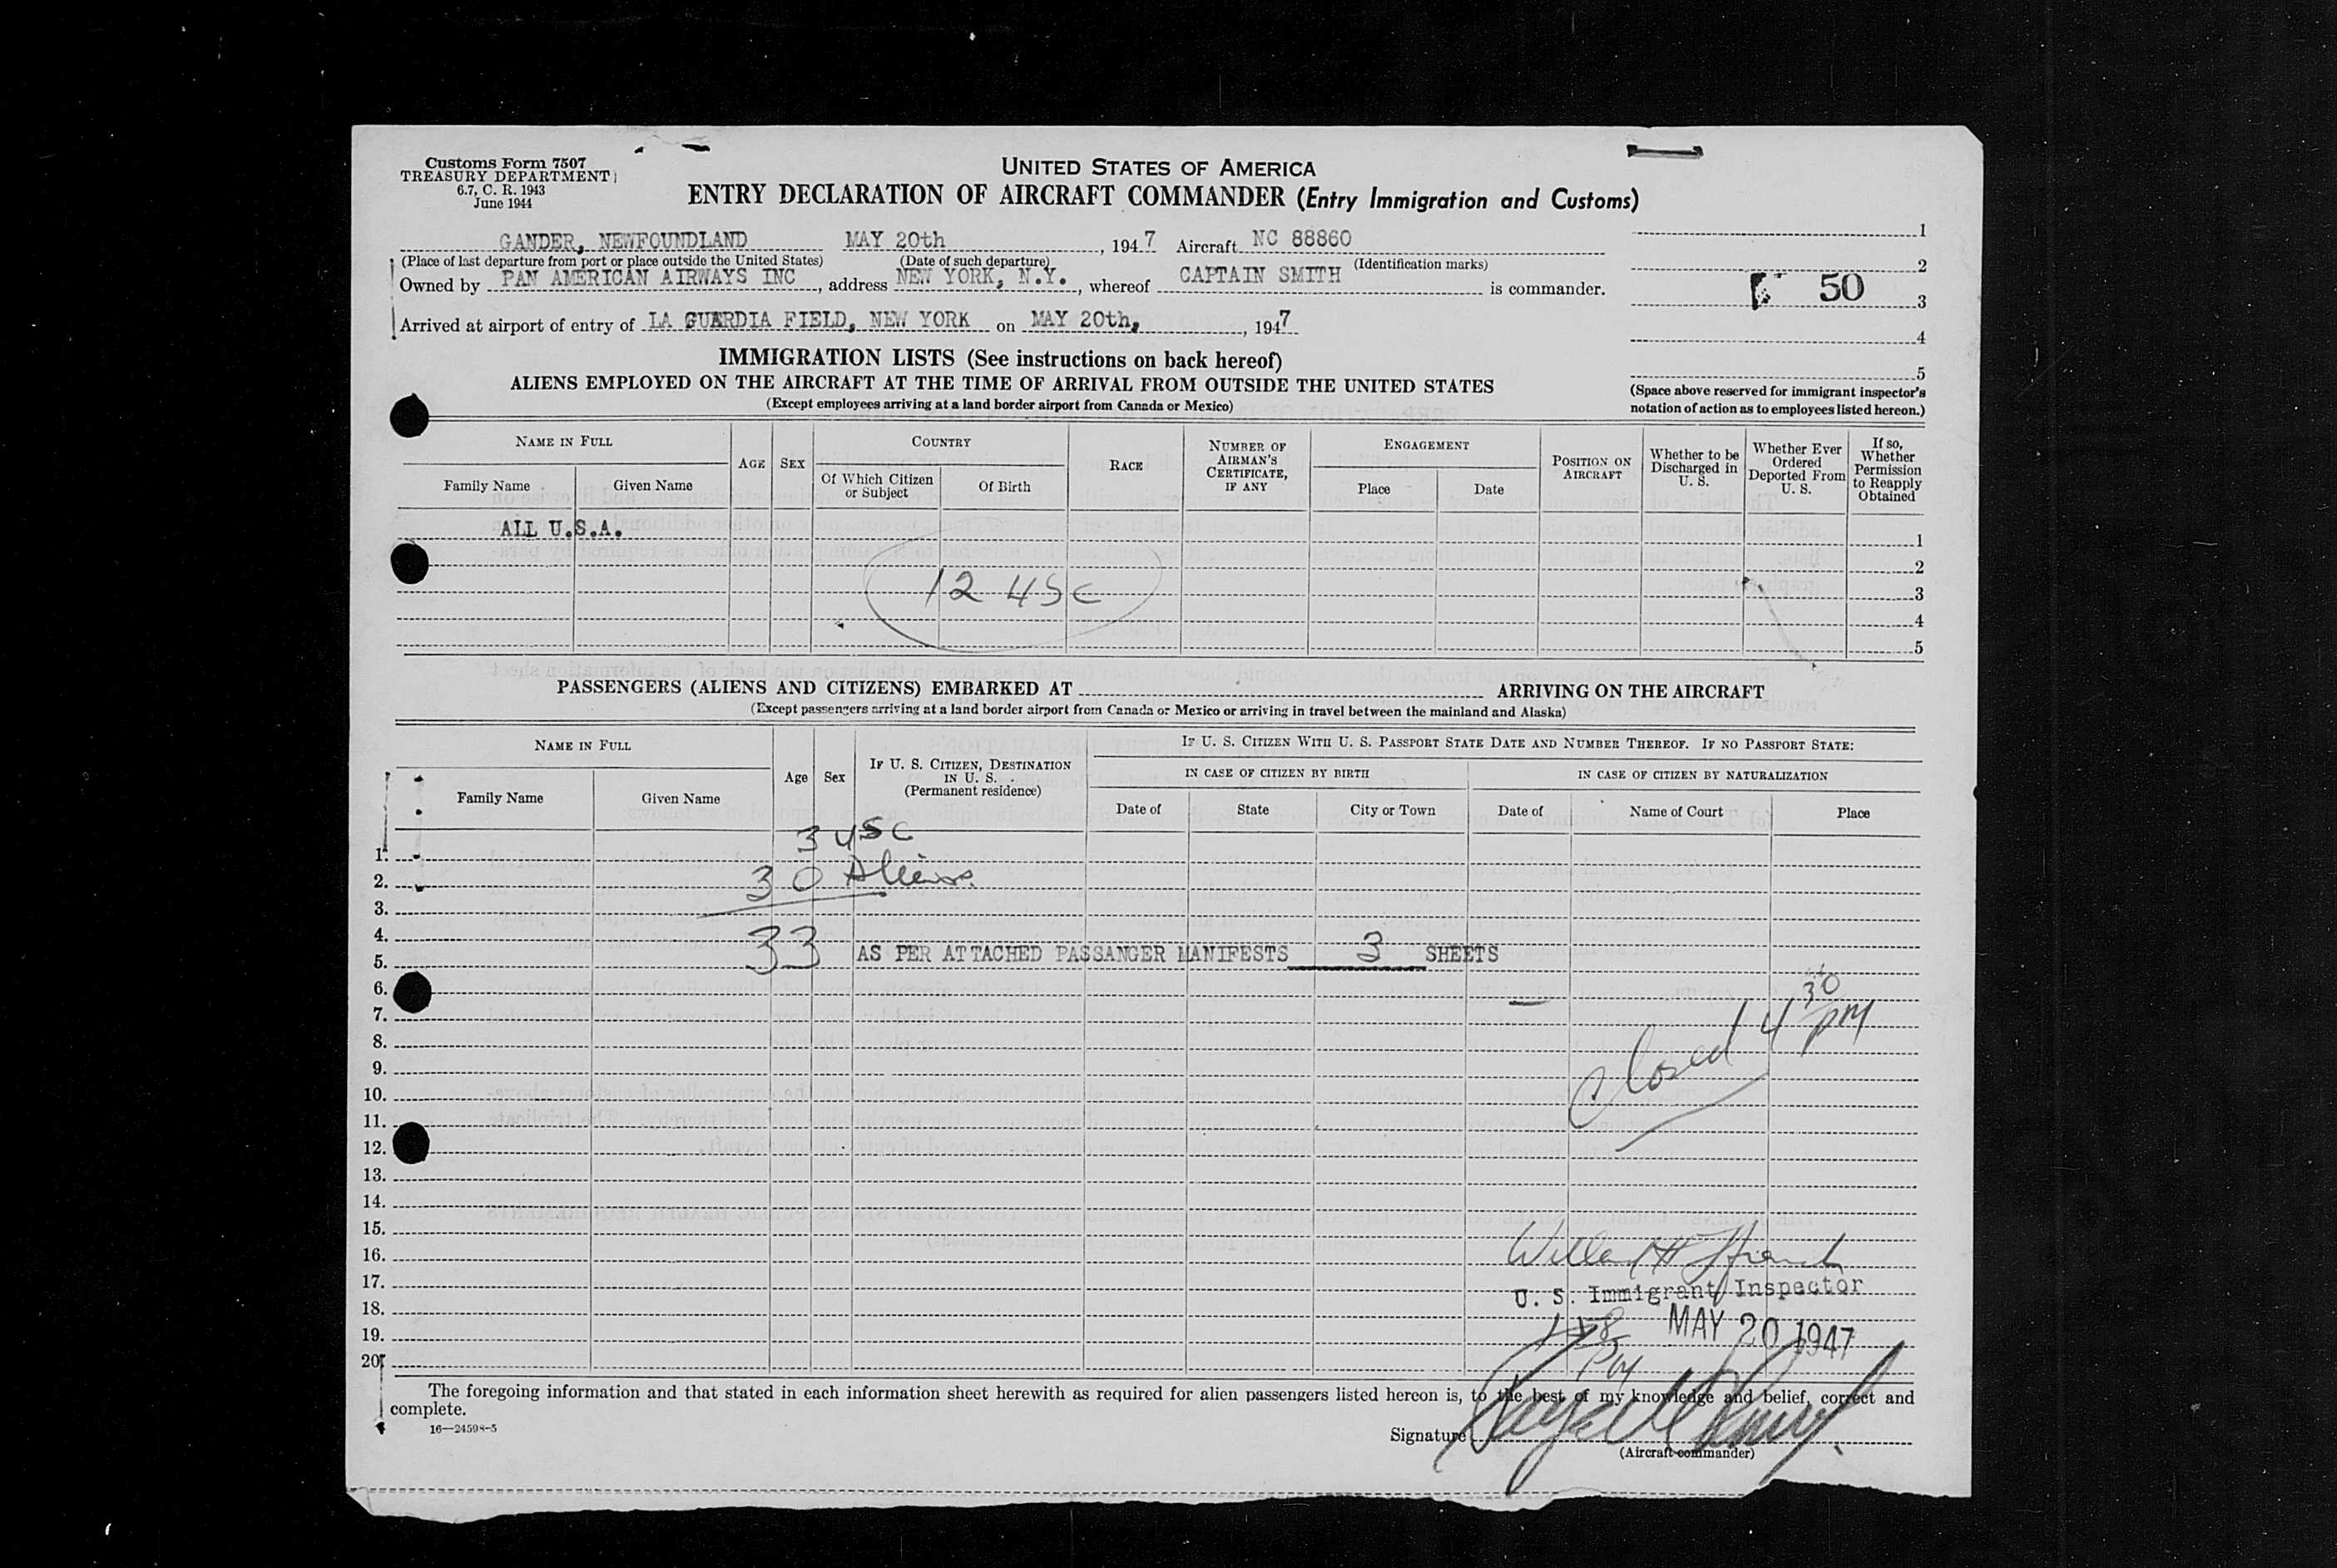 Customs Form 7507
TREASURY DEPARTMENT
6.7, C. R. 1943
June 1944
UNITED STATES OF AMERICA
ENTRY DECLARATION OF AIRCRAFT COMMANDER (Entry Immigration and Customs)
GANDER, NEWFOUNDLAND MAY 20th, 1947 Aircraft NC 88860
(Place of last departure from port or place outside the United States) (Date of such departure) (Identification marks)
Owned by PAN AMERICAN AIRWAYS INC, address NEW YORK, N.Y., whereof CAPTAIN SMITH is commander.
Arrived at airport of entry of LA GUARDIA FIELD, NEW YORK on MAY 20th, 1947
1
2
50 3
4
5
(Space above reserved for immigrant inspector's
notation of action as to employees listed hereon.)
IMMIGRATION LISTS (See instructions on back hereof)
ALIENS EMPLOYED ON THE AIRCRAFT AT THE TIME OF ARRIVAL FROM OUTSIDE THE UNITED STATES
(Except employees arriving at a land border airport from Canada or Mexico)
NAME IN FULL
Family Name Given Name
AGE
SEX
COUNTRY
Of Which Citizen
or Subject
Of Birth
RACE
NUMBER OF
AIRMAN'S
CERTIFICATE,
IF ANY
ENGAGEMENT
Place Date
POSITION ON
AIRCRAFT
Whether to be
Discharged in
U. S.
Whether Ever
Ordered
Deported From
U. S.
If so,
Whether
Permission
to Reapply
Obtained
ALL U.S.A.
1
2
12 USC 3
4
5
PASSENGERS (ALIENS AND CITIZENS) EMBARKED AT ARRIVING ON THE AIRCRAFT
(Except passengers arriving at a land border airport from Canada or Mexico or arriving in travel between the mainland and Alaska)
NAME IN FULL
Family Name Given Name
Age
Sex
IF U. S. CITIZEN, DESTINATION
IN U. S.
(Permanent residence)
IF U. S. CITIZEN WITH U. S. PASSPORT STATE DATE AND NUMBER THEREOF. IF NO PASSPORT STATE:
IN CASE OF CITIZEN BY BIRTH IN CASE OF CITIZEN BY NATURALIZATION
Date of State City or Town Date of Name of Court Place
3 USC
1.
30 Aliens
2.
3.
4.
33 AS PER ATTACHED PASSANGER MANIFESTS 3 SHEETS
5.
6.
7.
Closed 4 30 PM
8.
9.
10.
11.
12.
13.
14.
15.
16.
17.
U. S. Immigrant Inspector
18.
MAY 20 1947
19.
20.
The foregoing information and that stated in each information sheet herewith as required for alien passengers listed hereon is, to the best of my knowledge and belief, correct and
complete.
16—24598-5
Signature
(Aircraft commander)